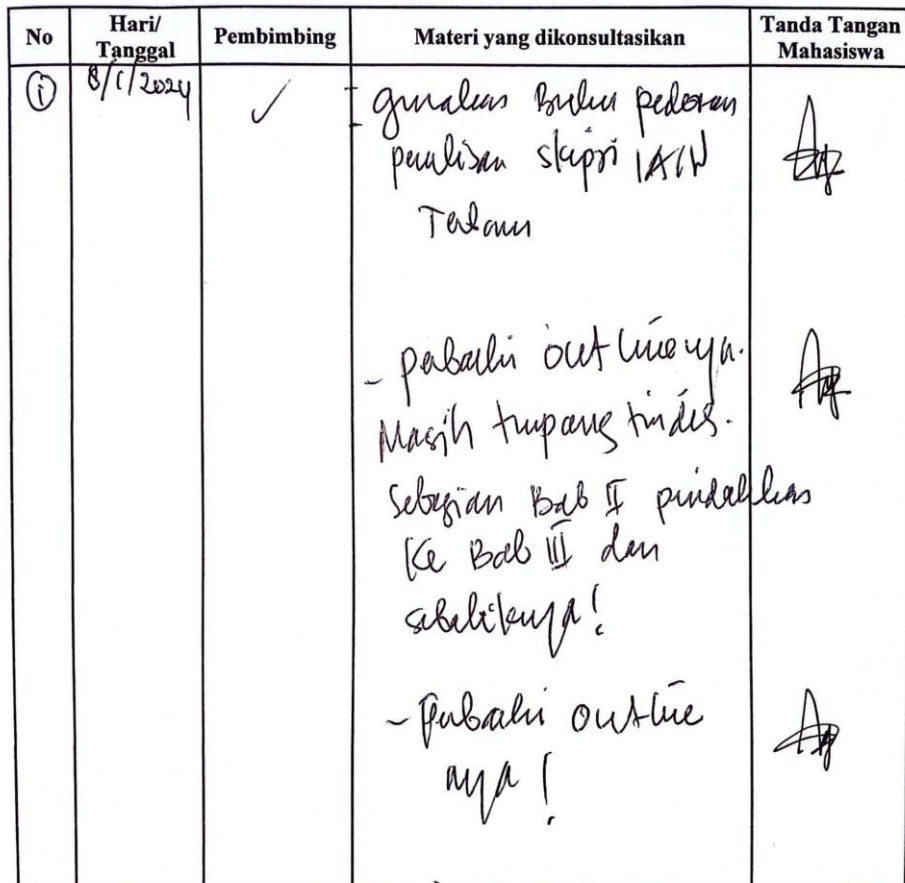 No
Hari/
Tanggal
Pembimbing
Materi yang dikonsultasikan
Tanda Tangan
Mahasiswa
1
8/1/2024
✓
- gunakan Buku pedoman
penulisan skripsi IAIN
Terbaru
- perbaiki outlinenya.
Masih tumpang tindih.
Sebagian Bab II pindahkan
Ke Bab III dan
sebaliknya!
- Perbaiki outline
nya!